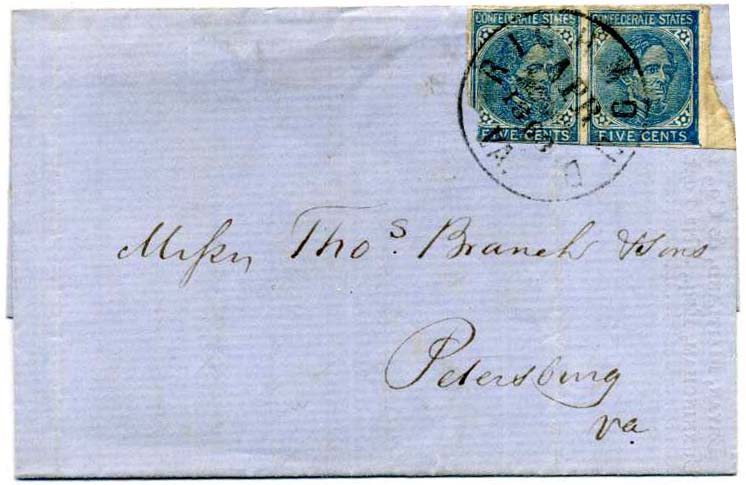 CONFEDERATE STATES CONFEDERATE STATES
FIVE CENTS FIVE CENTS
RICHMOND
APR
VA.
Messrs Thos. Branch & Sons
Petersburg
Va